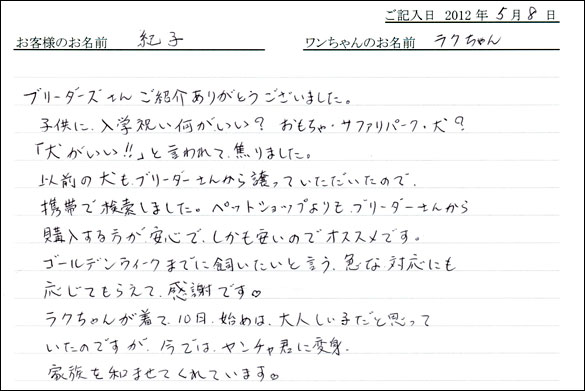 ご記入日 2012年 5月 8日
お客様のお名前 紀子 ワンちゃんのお名前 ラクちゃん
ブリーダーズさんご紹介ありがとうございました。
子供に、入学祝い何がいい? おもちゃ・サファリパーク・犬?
「犬がいい!!」と言われて、焦りました。
以前の犬も、ブリーダーさんから譲っていただいたので、
携帯で検索しました。ペットショップよりも、ブリーダーさんから
購入する方が安心で、しかも安いのでオススメです。
ゴールデンウィークまでに飼いたいと言う、急な対応にも
応じてもらえて、感謝です♡
ラクちゃんが着て、10日、始めは、大人しい子だと思って
いたのですが、今では、ヤンチャ君に変身、
家族を和ませてくれています。